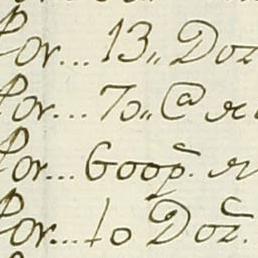 Por... 13,, Doz
Por... 70,, @ r
Por... 600p̄. r
Por... 10 Doz̄.